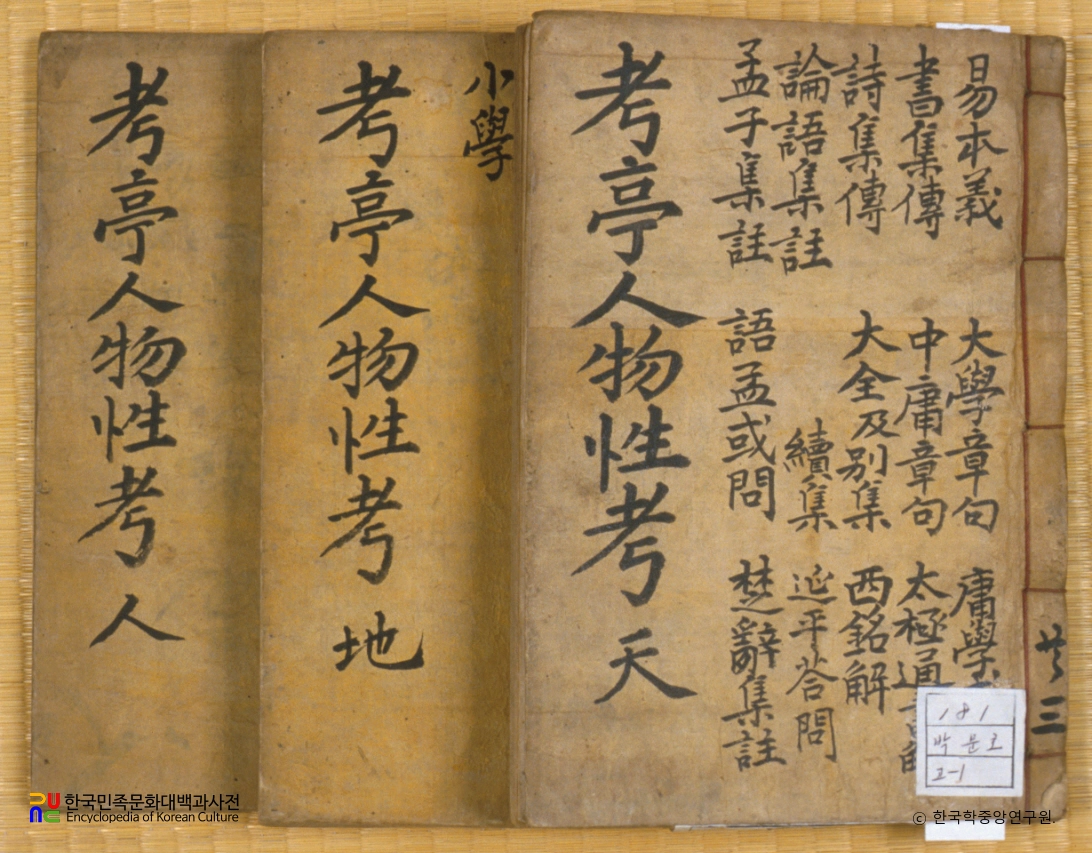 易本義 大學章句 庸學
書集傳 中庸章句 太極通書解
詩集傳 大全及別集 西銘解
論語集註 續集 延平答問
孟子集註 語孟或問 楚辭集註
考亭人物性考 天
小學
考亭人物性考 地
考亭人物性考 人
共三
181
한국민족문화대백과사전
Encyclopedia of Korean Culture
© 한국학중앙연구원.